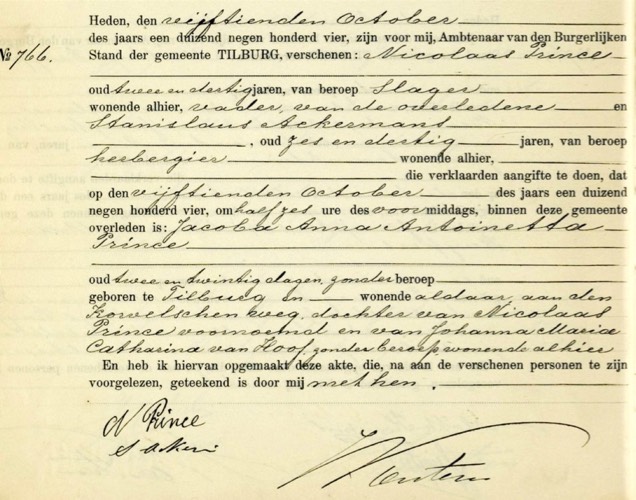 Heden, den vijftienden October
des jaars een duizend negen honderd vier, zijn voor mij, Ambtenaar van den Burgerlijken
No 766. Stand der gemeente TILBURG, verschenen: Nicolaas Prince
oud twee en dertig jaren, van beroep Slager
wonende alhier, vader, van de overledene en
Stanislaus Ackermans
, oud zes en dertig jaren, van beroep
herbergier wonende alhier,
die verklaarden aangifte te doen, dat
op den vijftienden October des jaars een duizend
negen honderd vier, om half zes ure des voormiddags, binnen deze gemeente
overleden is: Jacoba Anna Antoinetta
Prince
oud twee en twintig dagen, zonder beroep
geboren te Tilburg en wonende aldaar, aan den
Korvelschen weg, dochter van Nicolaas
Prince voornoemd en van Johanna Maria
Catharina van Hoof, zonder beroep wonende alhier
En heb ik hiervan opgemaakt deze akte, die, na aan de verschenen personen te zijn
voorgelezen, geteekend is door mij met hen.
N Prince